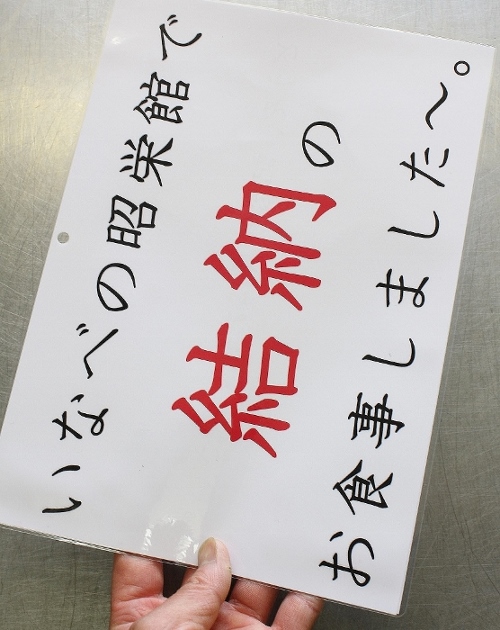 いなべの昭栄館で
結納の
お食事しました～。